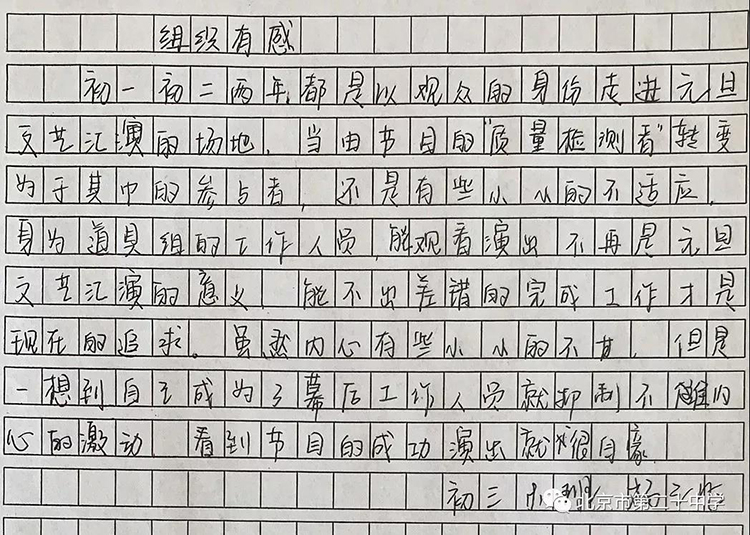 组织有感
初一初二两年,都是以观众的身份走进元旦
文艺汇演的场地,当由节目的“质量检测者”转变
为于其中的参与者,还是有些小小的不适应,
身为道具组的工作人员,能观看演出不再是元旦
文艺汇演的意义,能不出差错的完成工作才是
现在的追求。虽然内心有些小小的不甘,但是
一想到自己成为了幕后工作人员就抑制不住内
心的激动,看到节目的成功演出就很自豪
初三
北京市第二十中学